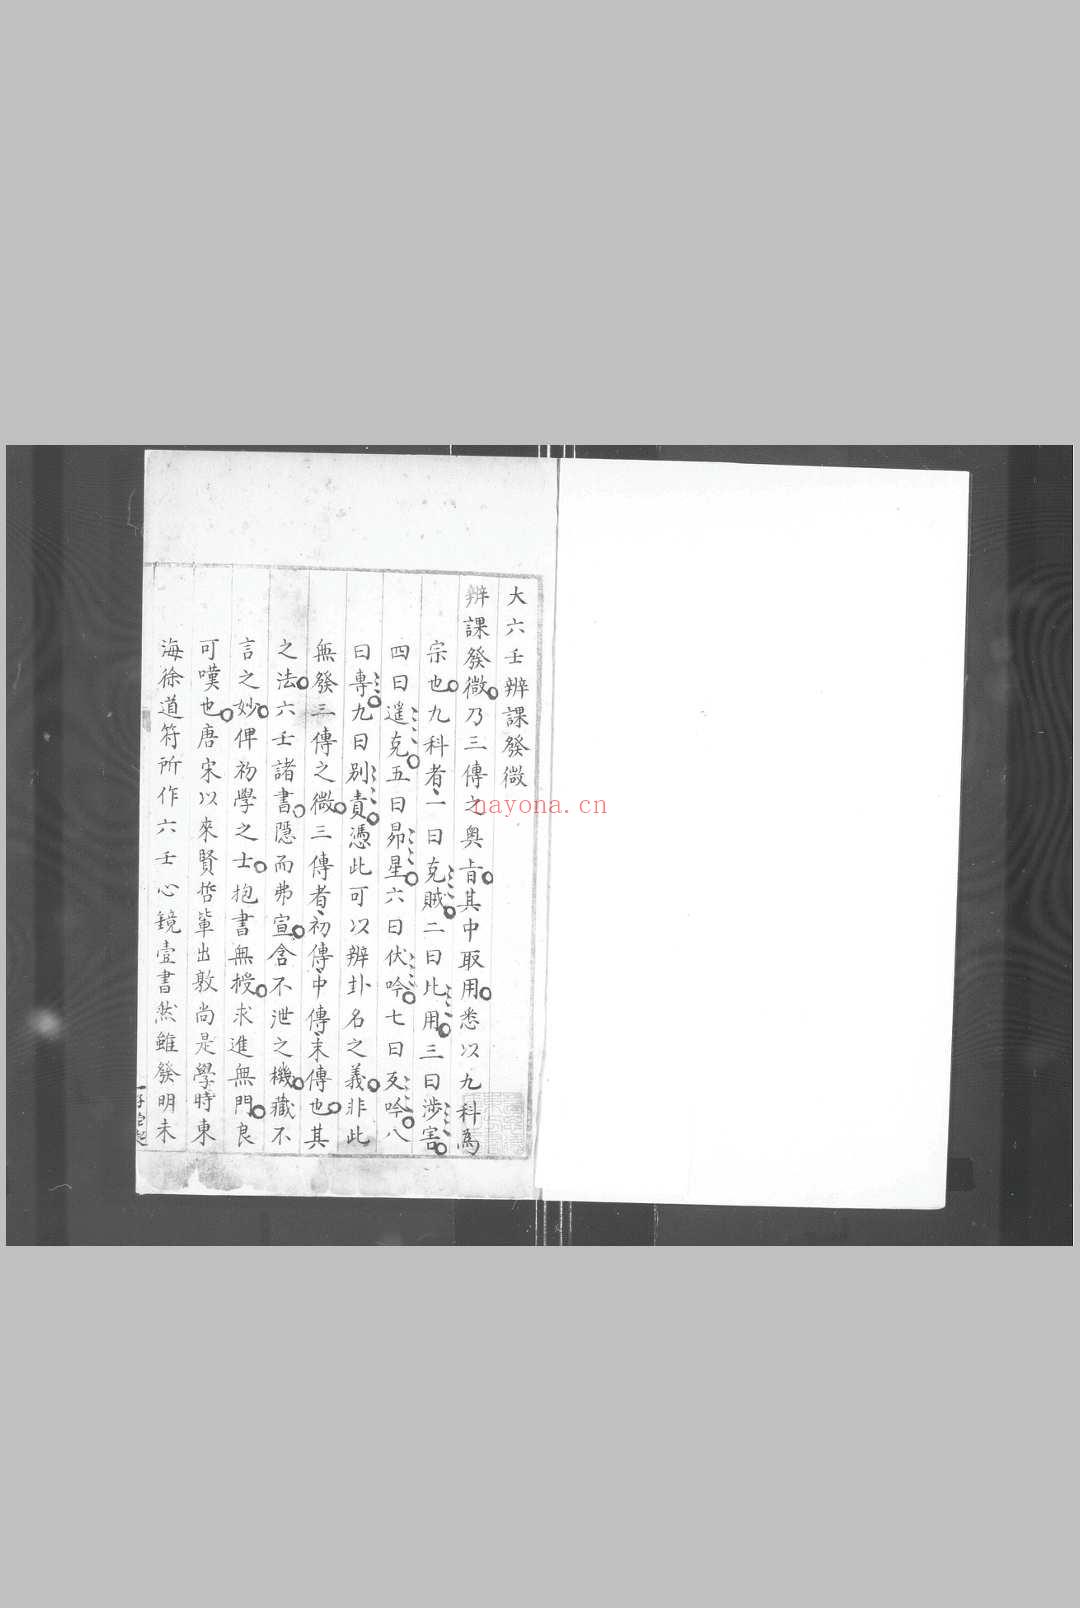 大六壬辨課發微
辨課發微乃三傳之奥旨其中取用悉以九科為
宗也九科者一曰克賊二曰比用三曰涉害
四曰遥克五曰昴星六曰伏吟七曰反吟八
曰專九曰别責憑此可以辨卦名之義非此
無發三傳之微三傳者初傳中傳末傳也其
之法六壬諸書隱而弗宣含不泄之機藏不
言之妙俾初學之士抱書無授求進無門良
可嘆也唐宋以來賢哲輩出敦尚是學時東
海徐道符所作六壬心鏡壹書然雖發明未
nayona.cn